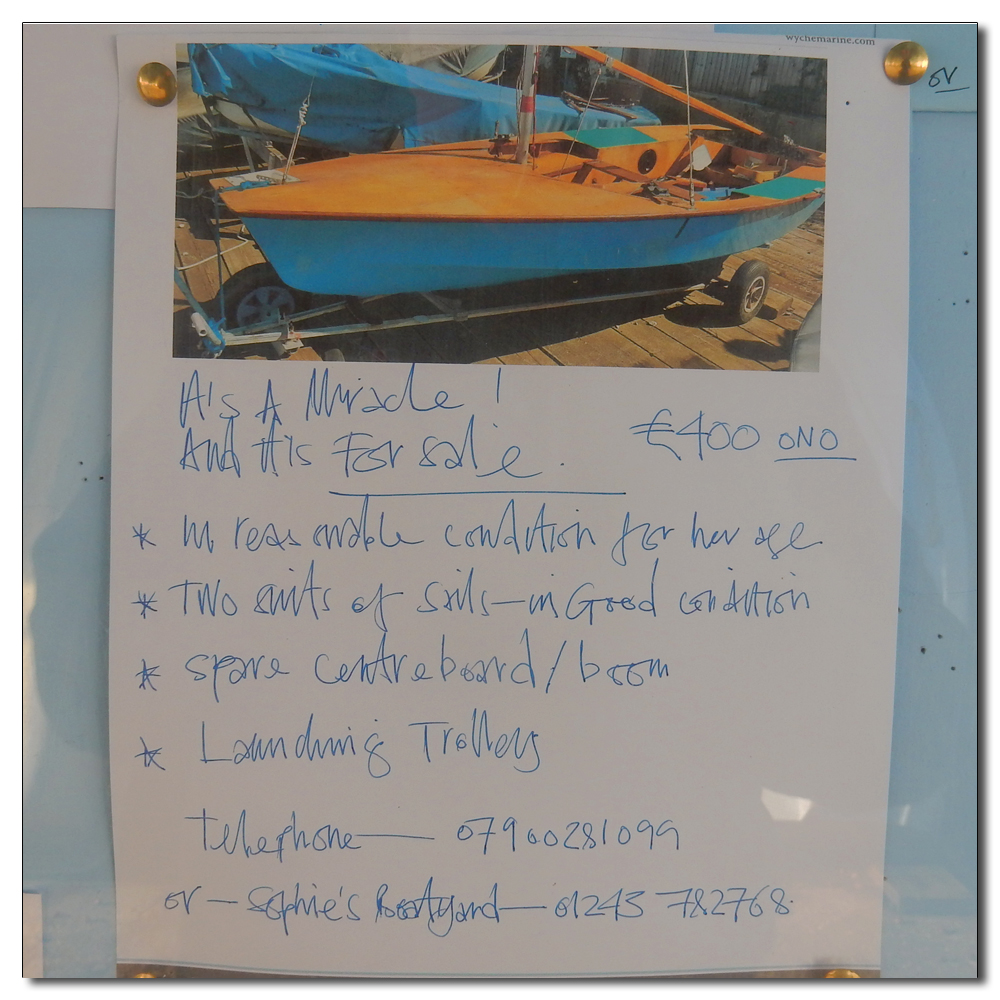 wychemarine.com
or
It's A Miracle !
And It Is For sale.
€400 ONO
* In reasonable condition for her age.
* Two suits of Sails—in Good condition
* spare centreboard/boom
* Launching Trolley
Telephone — 07900281099
or — Sophie's Boatyard — 01243 782768.